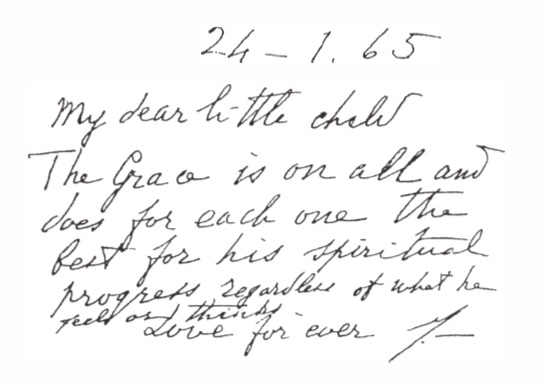 24 – 1. 65
My dear little child
The Grace is on all and
does for each one the
best for his spiritual
progress regardless of what he
feels or thinks
Love for ever